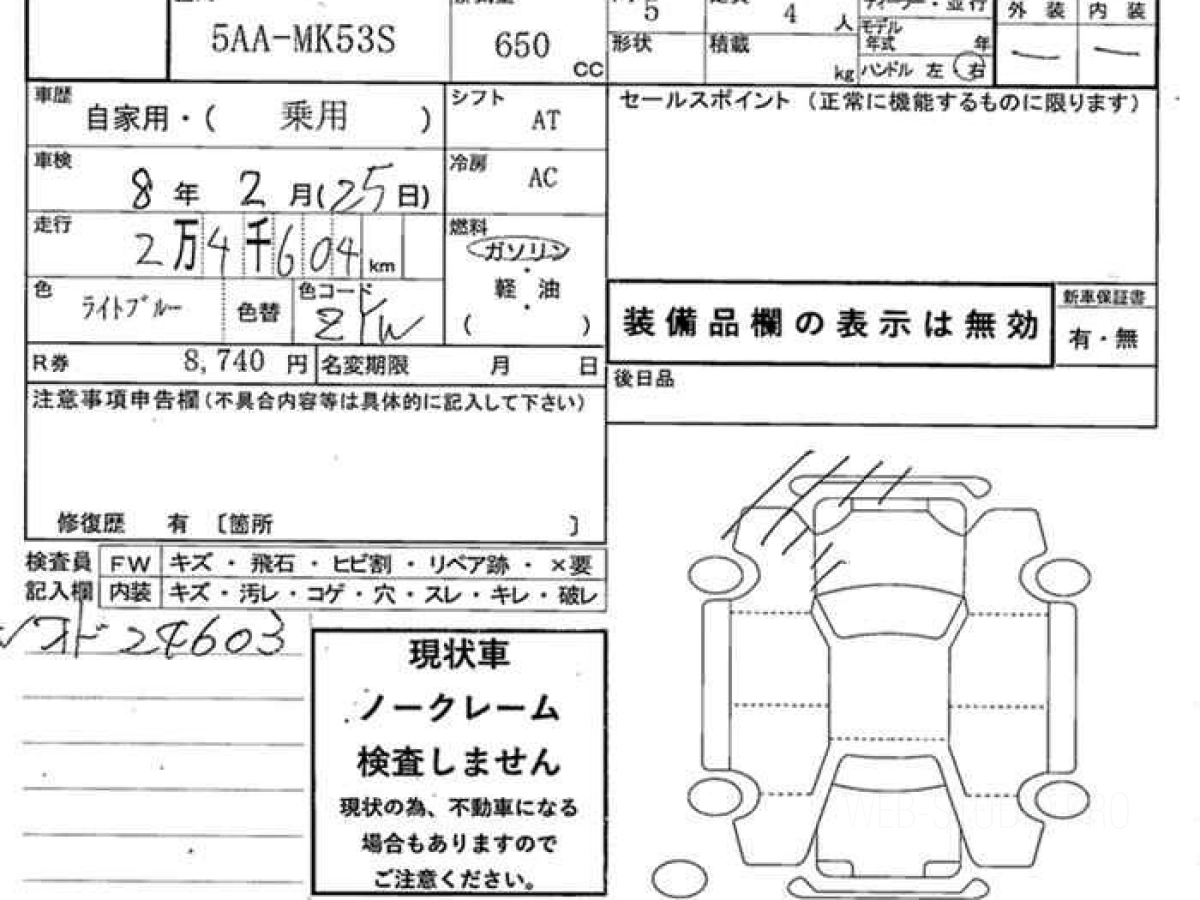 5AA-MK53S
650
CC
5
4
人
形状
積載
kg
モデル
年式
年
ハンドル 左・右
外装
内装
車歴
自家用・( 乗用 )
シフト
AT
セールスポイント (正常に機能するものに限ります)
車検
8年 2月(25日)
冷房
AC
走行
2万4千604km
燃料
ガソリン
・
軽・油
( )
色
ライトブルー
色替
色コード
ZYW
装備品欄の表示は無効
新車保証書
有・無
R券
8,740 円
名変期限 月 日
後日品
注意事項申告欄(不具合内容等は具体的に記入して下さい)
修復歴 有 〔箇所 〕
検査員
記入欄
FW
キズ・飛石・ヒビ割・リペア跡・×要
内装
キズ・汚レ・コゲ・穴・スレ・キレ・破レ
24603
現状車
ノークレーム
検査しません
現状の為、不動車になる
場合もありますので
ご注意ください。